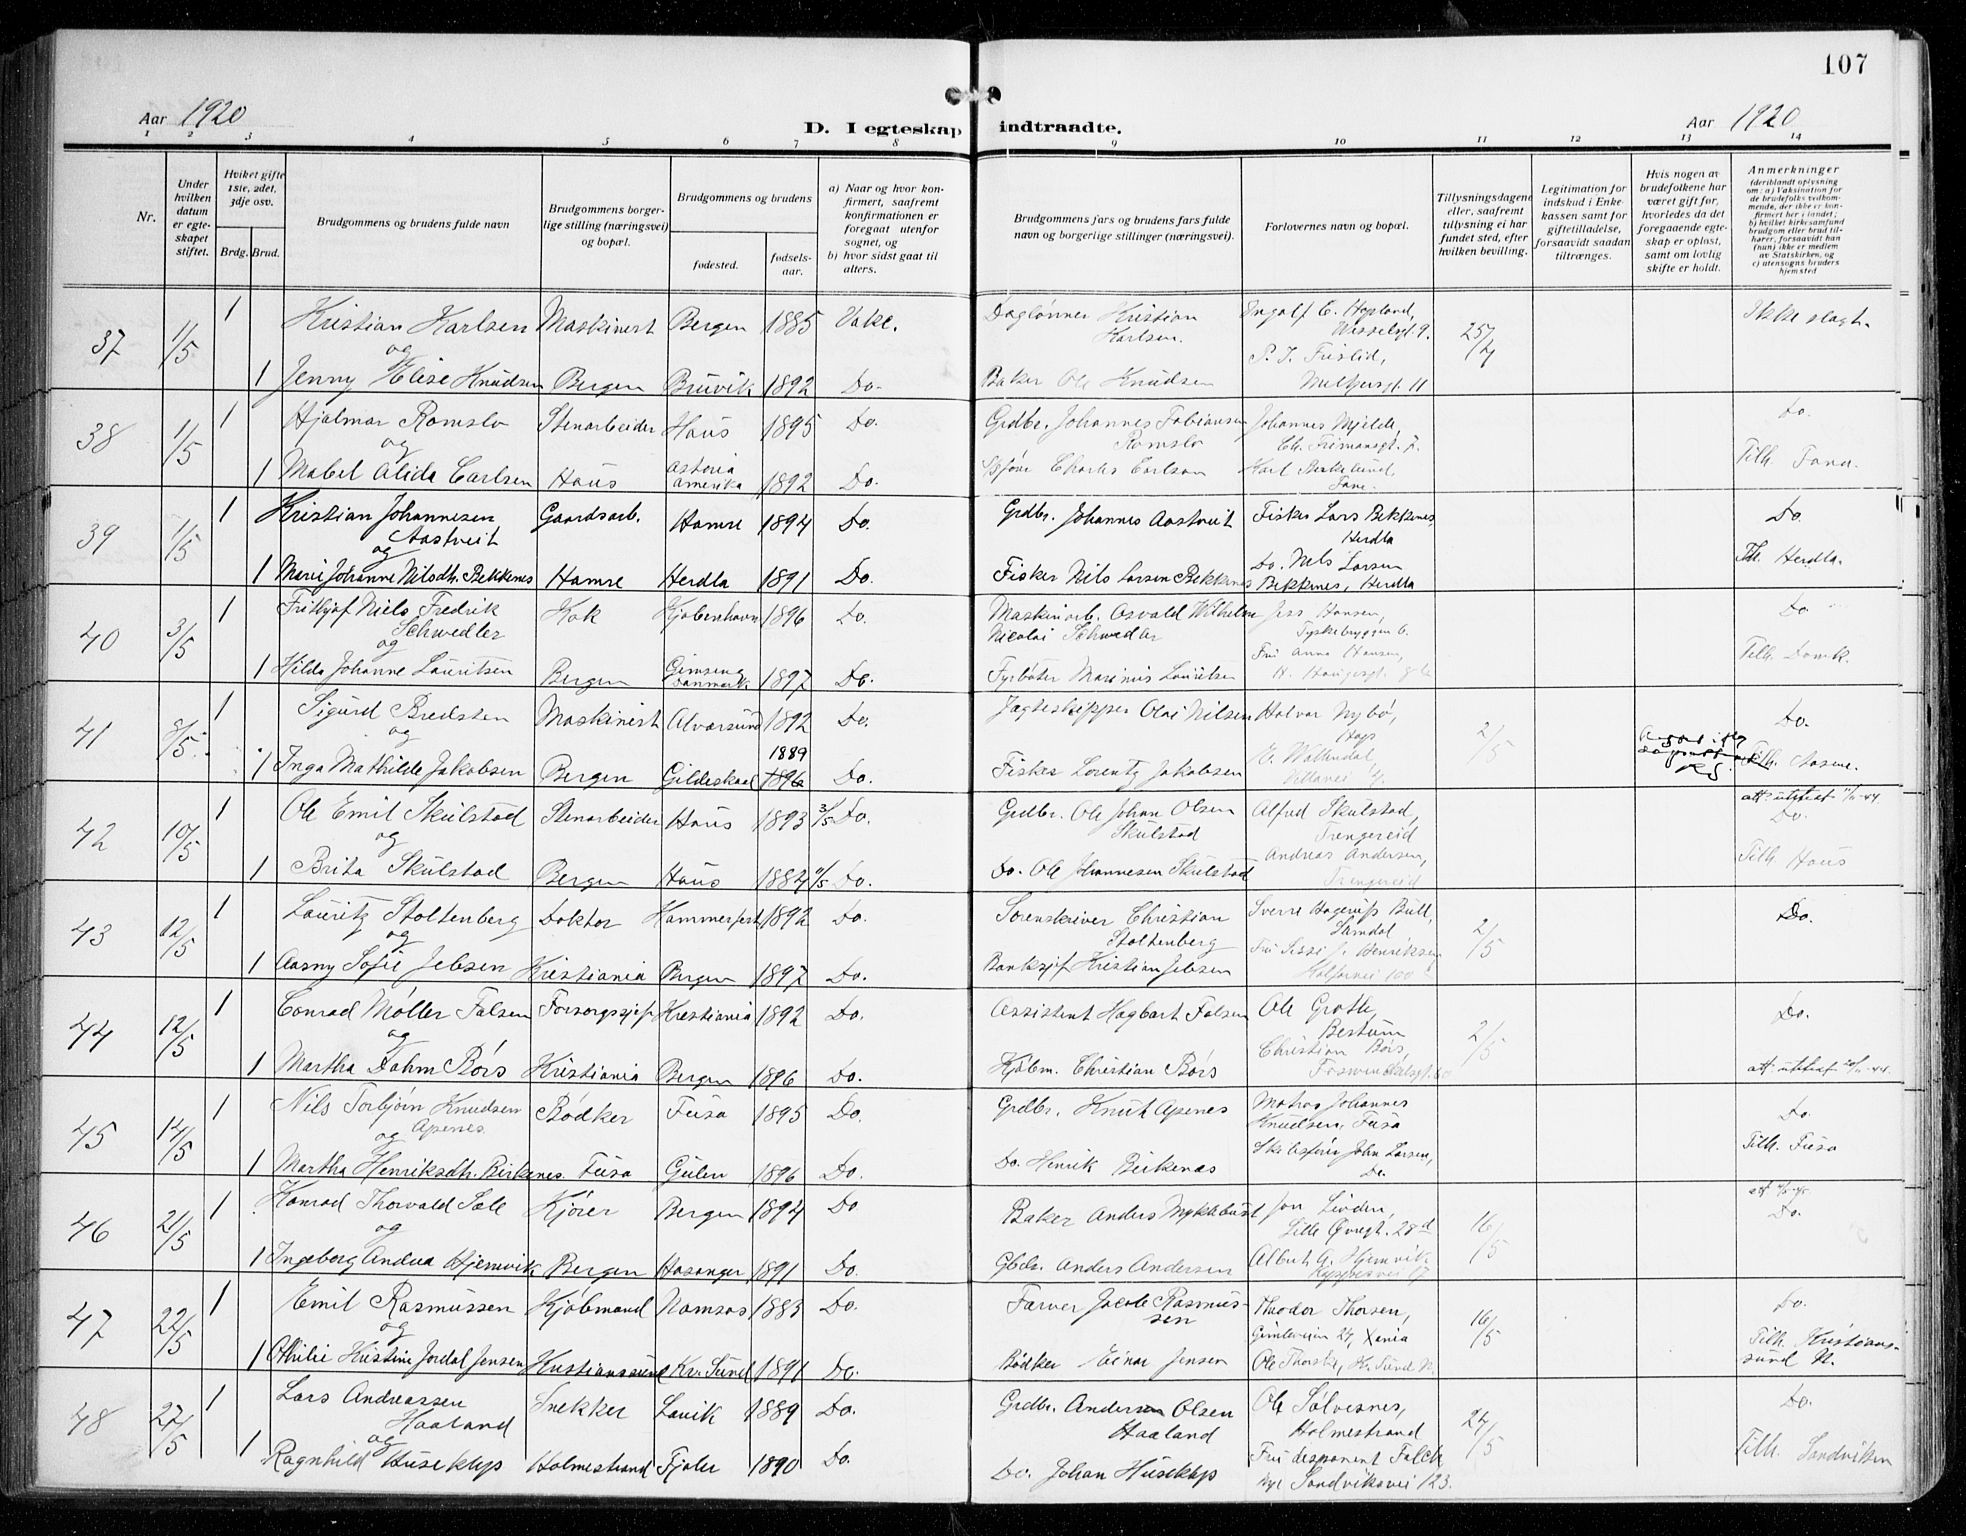 107
Aar 1920
D. I egteskap indtraadte.
Aar 1920
1 2 3 4 5 6 7 8 9 10 11 12 13 14
Nr.
Under hvilken datum er egteskapet stiftet.
Hviket gifte 1ste, 2det, 3dje osv.
Brdg. Brud.
Brudgommens og brudens fulde navn
Brudgommens borgerlige stilling (næringsvei) og bopæl.
Brudgommens og brudens
fødested.
fødselsaar.
a) Naar og hvor konfirmert, saafremt konfirmationen er foregaat utenfor sognet, og
b) hvor sidst gaat til alters.
Brudgommens fars og brudens fars fulde navn og borgerlige stillinger (næringsvei).
Forlovernes navn og bopæl.
Tillysningsdagene eller, saafremt tillysning ei har fundet sted, efter hvilken bevilling.
Legitimation for indskud i Enkekassen samt for giftetilladelse, forsaavidt saadan tiltrænges.
Hvis nogen av brudefolkene har været gift før, hvorledes da det foregaaende egteskap er opløst, samt om lovlig skifte er holdt.
Anmerkninger
(deriblandt oplysning om: a) Vaksination for de brudefolks vedkommende, der ikke er konfirmert her i landet; b) hvilket kirkesamfund brudgom eller brud tilhører, forsaavidt han (hun) ikke er medlem av Statskirken, og c) utensogns bruders hjemsted
37 1/5 1 Kristian Karlsen Maskinist Bergen 1885 Vake. Daglønner Kristian Karlsen. Ingolf E. Hopland, Wesselsgt. 9. 25/4 Ikke slagt.
og
1 Jenny Elise Knudsen Bergen Bruvik 1892 Do. Baker Ole Knudsen P. J. Frislid,
38 1/5 1 Hjalmar Romslo Stenarbeider Haus 1895 Do. Grdbr. Johannes Fabiansen Romslo Johannes Mjelde, Do.
og
1 Mabel Alida Carlsen Haus Astoria Amerika 1892 Do. Charles Carlsen Fane. Tilh. Fana.
39 1/5 1 Kristian Johannesen Aastveit Gaardsarb. Hamre 1894 Do. Grdbr. Johannes Aastveit Fisker Lars Bekkenes, Herdla Do.
og
1 Marie Johanne Nilsdtr. Bekkenes Hamre Herdla 1891 Do. Fisker Nils Larsen Bekkenes Do. Nils Larsen Bekkenes, Herdla Tilh. Herdla.
40 3/5 1 Fritjof Niels Fredrik Schwedler Kok Kjøbenhavn 1896 Do. Maskinarb. Osvald Wilhelm Nicolai Schwedler Jess Hansen, Tyskebryggen 6. Do
og
1 Hilda Johanne Lauritsen Bergen Gimsing Danmark 1897 Do. Fyrbøter Marinus Lauritsen Fru Anna Hansen, H. Haugesgt. Tilh. Domk.
41 8/5 1 Sigurd Bredsten Maskinist Alversund 1892 Do. Jagteskipper Olai Nilsen Halvar Nybø, Hop 2/5 Do.
og
1 Inga Mathilde Jakobsen Bergen Gildeskaal 1889 1896 Do. Fisker Lorentz Jakobsen Tilh. Aasene.
42 10/5 1 Ole Emil Skulstad Stenarbeider Haus 1893 3/5 Do. Grdbr. Ole Johan Olsen Skulstad Alfred Skulstad, Trengereid Do.
og
1 Brita Skulstad Bergen Haus 1884 Do. Do. Ole Johannesen Skulstad Andreas Andersen, Trengereid Tilh Haus
43 12/5 1 Lauritz Stoltenberg Doktor Hammerfest 1892 Do. Sorenskriver Christian Stoltenberg Sverre Hagerup Bull, 2/5 Do.
og
1 Aasny Sofie Jebsen Kristiania Bergen 1897 Do. Banksjef Kristian Jebsen Kalfarvei 100
44 12/5 1 Conrad Møller Falsen Forsorgssjef Kristiania 1892 Do. Assistent Hagbart Falsen Ole Groth, Bestum 2/5 Do.
og
1 Martha Dahm Børs Kristiania Bergen 1896 Do. Kjøbm. Christian Børs Christian Børs,
45 14/5 1 Nils Torbjørn Knudsen Apenes Bødker Fusa 1895 Do. Grdbr. Knut Apenes Matros Johannes Knudsen, Fusa Do.
og
1 Martha Henriksdtr. Birkenes Fusa Gulen 1896 Do. Do. Henrik Birkenæs John Larsen, Do. Tilh. Fusa
46 21/5 1 Konrad Thorvald Sæle Kjører Bergen 1894 Do Baker Anders Myklebust Jon Linden, Lille Øvregt. 28d 16/5 Do.
og
1 Ingeborg Andrea Hjemvik Bergen Hosanger 1891 Do. Gbdr. Anders Andersen Albert A. Hjemvik
47 22/5 1 Emil Rasmussen Kjøbmand Namsos 1883 Do. Farver Jacob Rasmussen Theodor Thorsen, Gimleveien 24, Xania 16/5 Do.
og
1 Othilie Kristine Jordal Jensen Kristianssund Kr. Sund 1891 Do. Bødker Einar Jensen Tilh. Kristianssund N.
48 27/5 1 Lars Andreassen Haaland Snekker Lavik 1889 Do. Grdbr. Andersen Olsen Haaland Ole Sølvesnes, Holmestrand 24/5 Do.
og
1 Ragnhild Huseklep Holmestrand Fjaler 1890 Do. Do. Johan Huseklep Fru disponent Falck Sandviksvei 123. Tilh. Sandviken